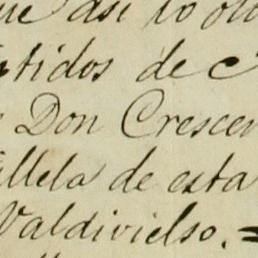 ue así lo oto
tidos de
Don Crescen
illela de esta
Valdivielso. =